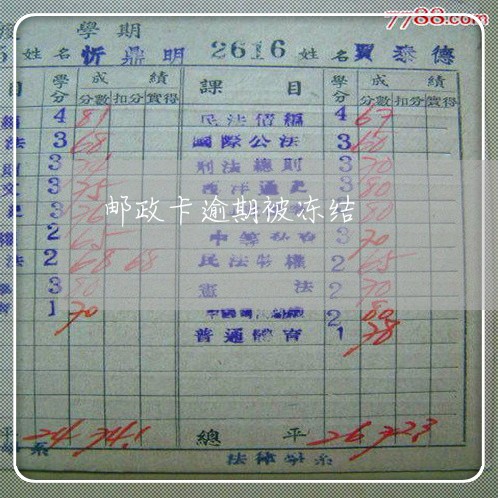 7788.com
學期
姓名 忻鼎明 2616 姓名 賈泰德
目 學分 成績 課目 學分 成績
分數 扣分 實得 分數 扣分 實得
4 81 民法債編 4 67
法 3 68 國際公法 3 60
3 刑法總則 3 70
3 75 西洋通史 3 80
3 76 3 80
邮政卡逾期被冻结
2 65 3 70
法 2 68 68 民法物權 2 65
3 80 憲法 2 70
1 70 2 80
普通體育 1 78
平 24 74.1 總平 26 72.3
系 法律學系